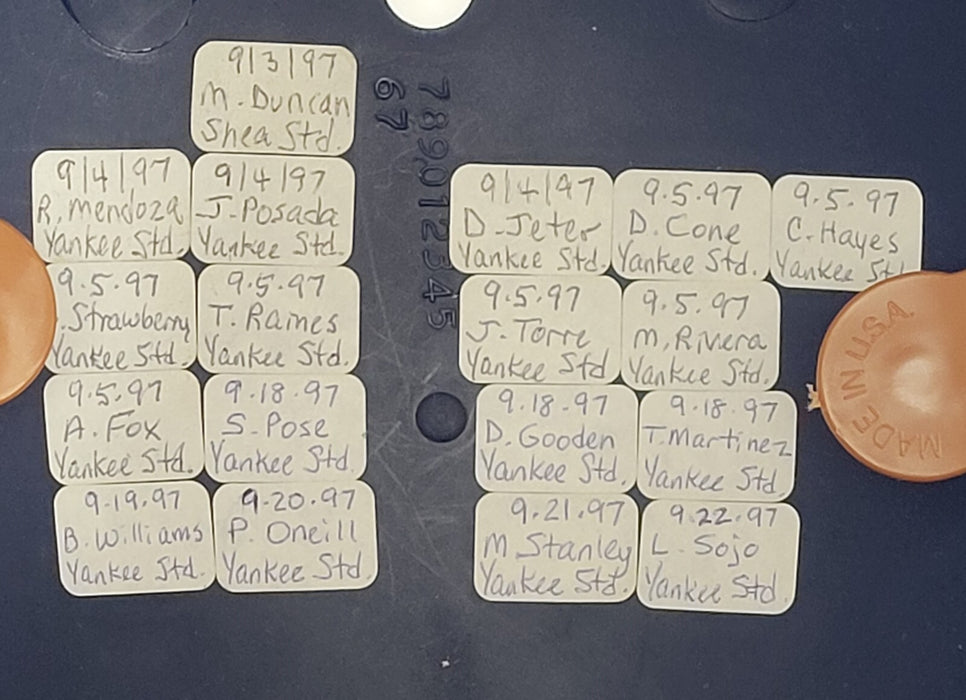 9/3/97
M. Duncan
Shea Std.
9/4/97
R. Mendoza
Yankee Std.
9/4/97
J. Posada
Yankee Std.
9.5.97
. Strawberry
Yankee Std.
9.5.97
T. Raines
Yankee Std.
9.5.97
A. Fox
Yankee Std.
9.18.97
S. Pose
Yankee Std.
9.19.97
B. Williams
Yankee Std.
9.20.97
P. Oneill
Yankee Std.
789012345
67
9/4/97
D. Jeter
Yankee Std.
9.5.97
D. Cone
Yankee Std.
9.5.97
C. Hayes
Yankee Std
9.5.97
J. Torre
Yankee Std
9.5.97
M. Rivera
Yankee Std.
9.18.97
D. Gooden
Yankee Std.
9.18.97
T. Martinez
Yankee Std.
9.21.97
M Stanley
Yankee Std.
9.22.97
L. Sojo
Yankee Std.
MADE IN U.S.A.